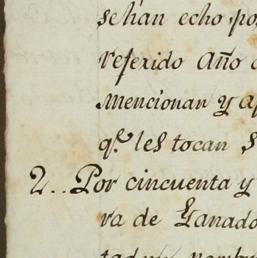 se han echo po
referido Año
mencionan y ap
q.e les tocan S
2.. Por cincuenta y
ra de Ganado